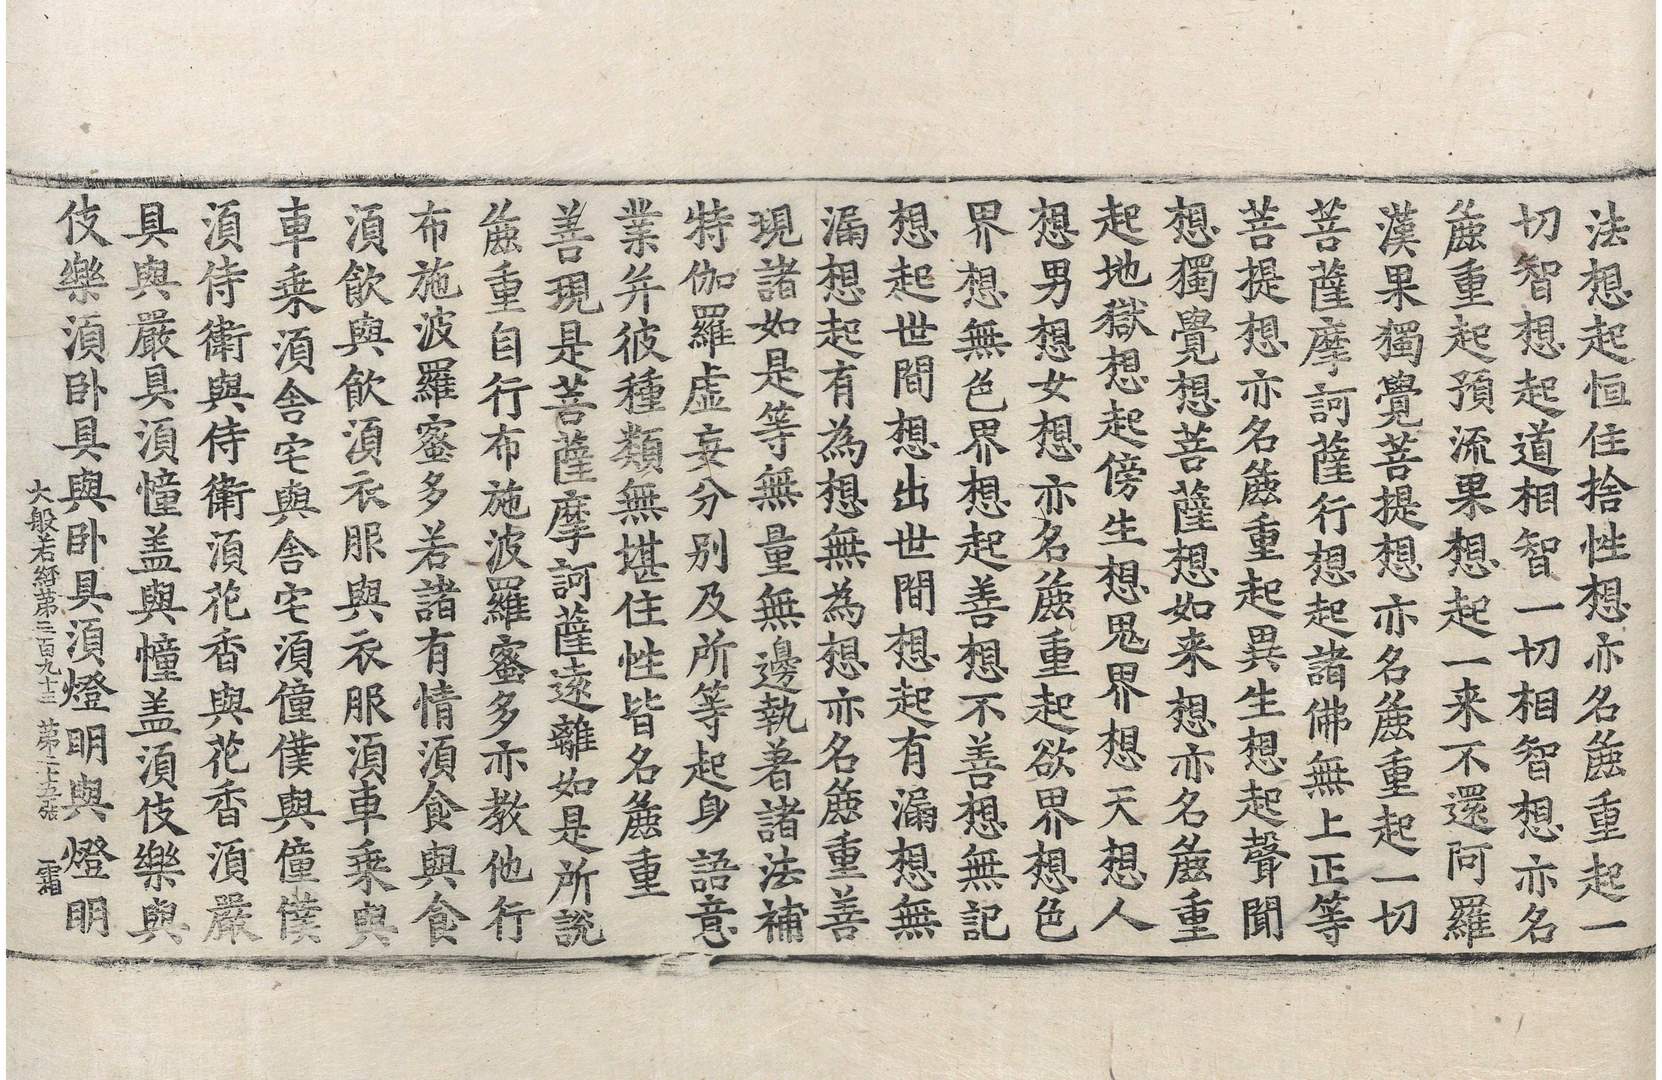 法想起恒住捨性想亦名麁重起一
切智想起道相智一切相智想亦名
麁重起預流果想起一来不還阿羅
漢果獨覺菩提想亦名麁重起一切
菩薩摩訶薩行想起諸佛無上正等
菩提想亦名麁重起異生想起聲聞
想獨覺想菩薩想如来想亦名麁重
起地獄想起傍生想鬼界想天想人
想男想女想亦名麁重起欲界想色
界想無色界想起善想不善想無記
想起世間想出世間想起有漏想無
漏想起有為想無為想亦名麁重善
現諸如是等無量無邊執著諸法補
特伽羅虛妄分別及所等起身語意
業并彼種類無堪住性皆名麁重
善現是菩薩摩訶薩遠離如是所說
麁重自行布施波羅蜜多亦教他行
布施波羅蜜多若諸有情湏食與食
湏飲與飲湏衣服與衣服湏車乘與
車乘湏舎宅與舎宅湏僮僕與僮僕
湏侍衛與侍衛湏花香與花香湏嚴
具與嚴具湏幢盖與幢盖湏伎樂與
伎樂湏卧具與卧具湏燈明與燈明
大般若經第三百九十三 第二十五張 霜